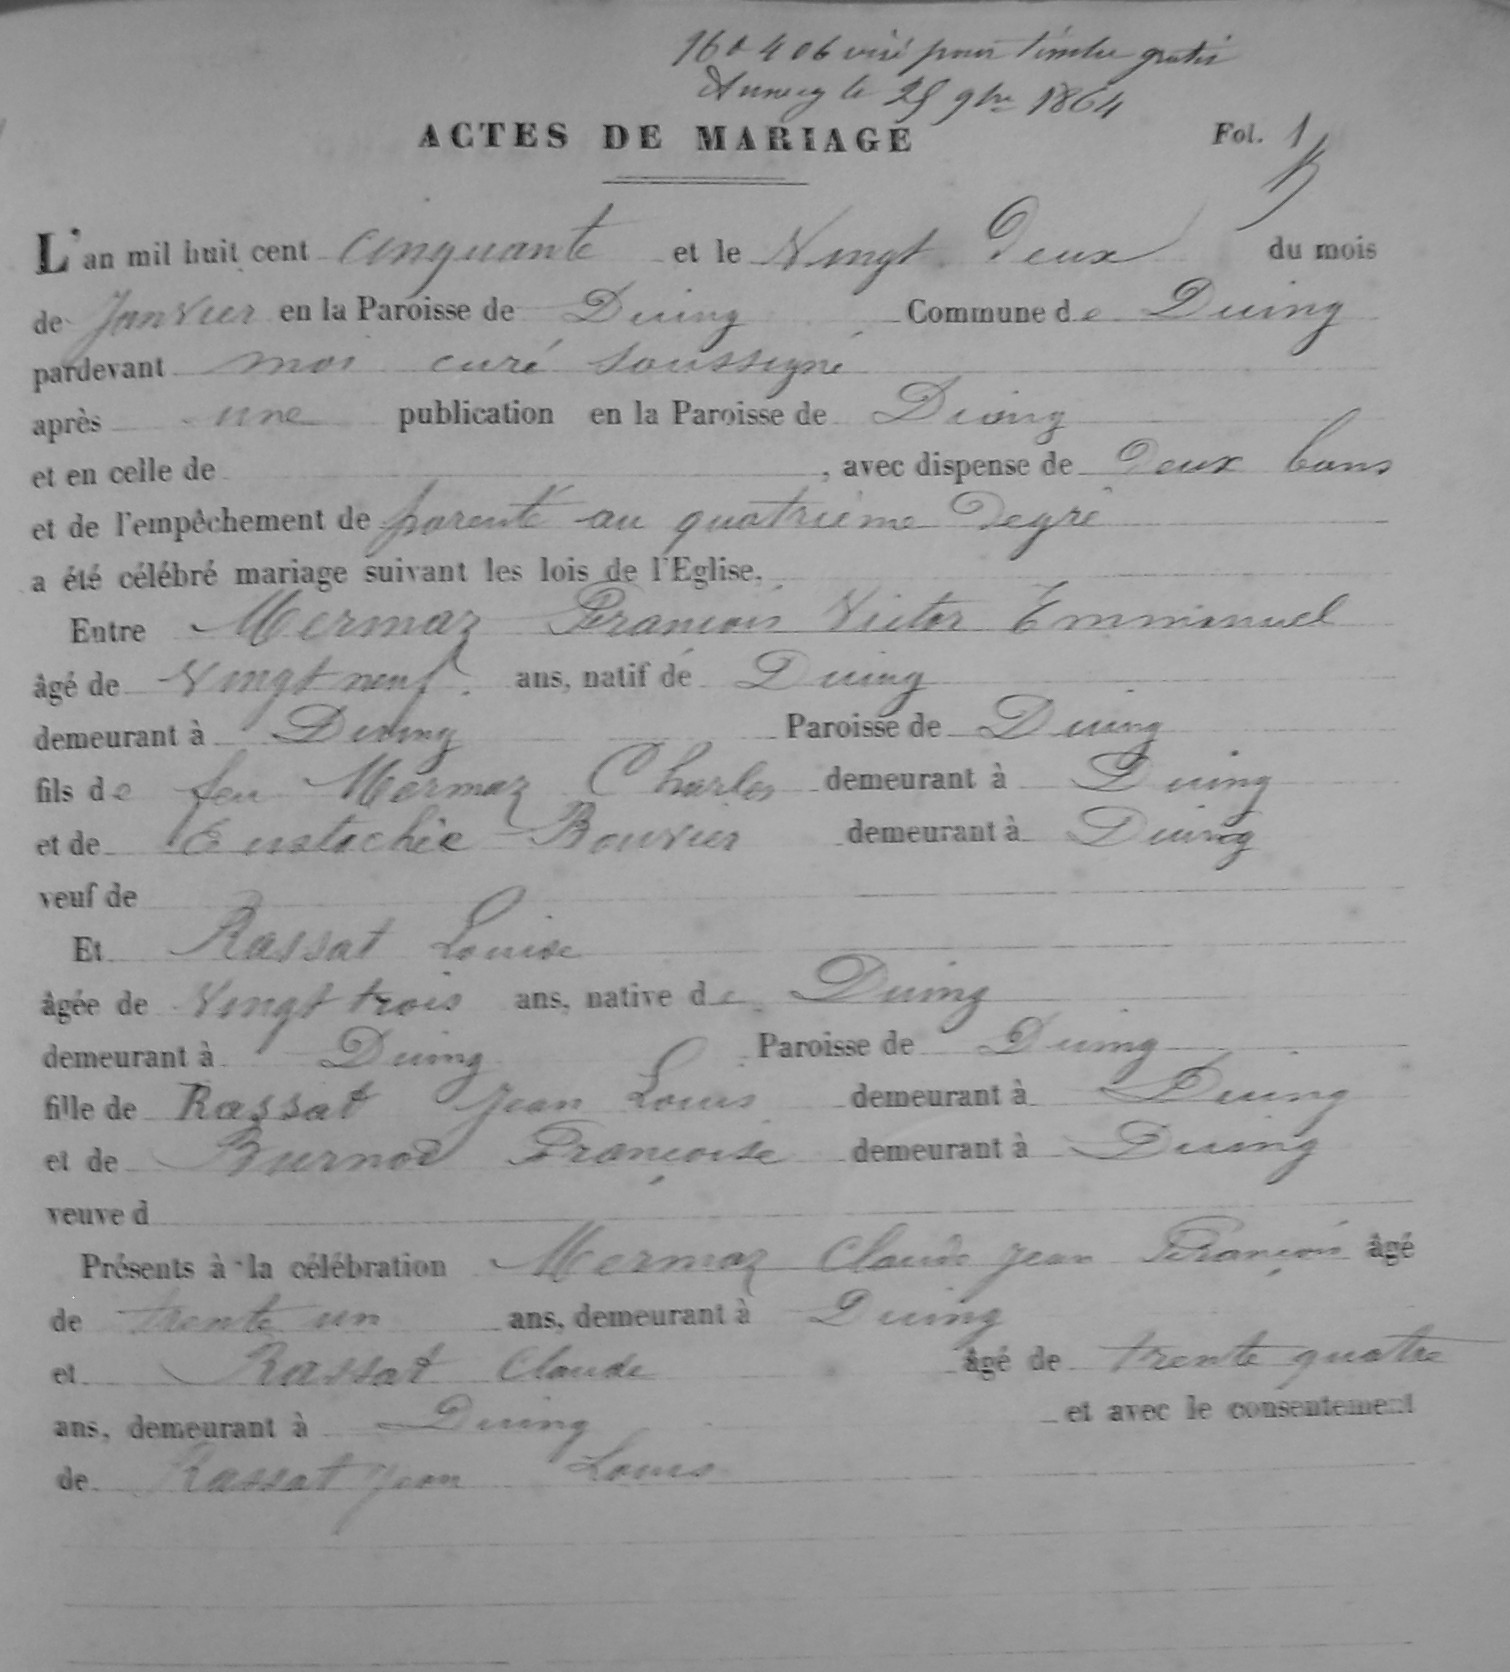 visé pour timbre gratis
Annecy le 25 9bre 1864
ACTES DE MARIAGE
Fol. 1
L'an mil huit cent cinquante et le Vingt Deux du mois
de Janvier en la Paroisse de Duing Commune de Duing
pardevant moi curé soussigné
après une publication en la Paroisse de Duing
et en celle de , avec dispense de Deux bans
et de l'empêchement de parenté au quatrième Degré
a été célébré mariage suivant les lois de l'Eglise.
Entre Mermaz François Victor Emmanuel
âgé de Vingt neuf ans, natif de Duing
demeurant à Duing Paroisse de Duing
fils de feu Mermaz Charles demeurant à Duing
et de Eustachie Bouvier demeurant à Duing
veuf de
Et Rassat Louise
âgée de Vingt trois ans, native de Duing
demeurant à Duing Paroisse de Duing
fille de Rassat Jean Louis demeurant à Duing
et de Burnod Françoise demeurant à Duing
veuve d
Présents à la célébration Mermaz Claude Jean François âgé
de trente un ans, demeurant à Duing
et Rassat Claude âgé de trente quatre
ans, demeurant à Duing et avec le consentement
de Rassat Jean Louis